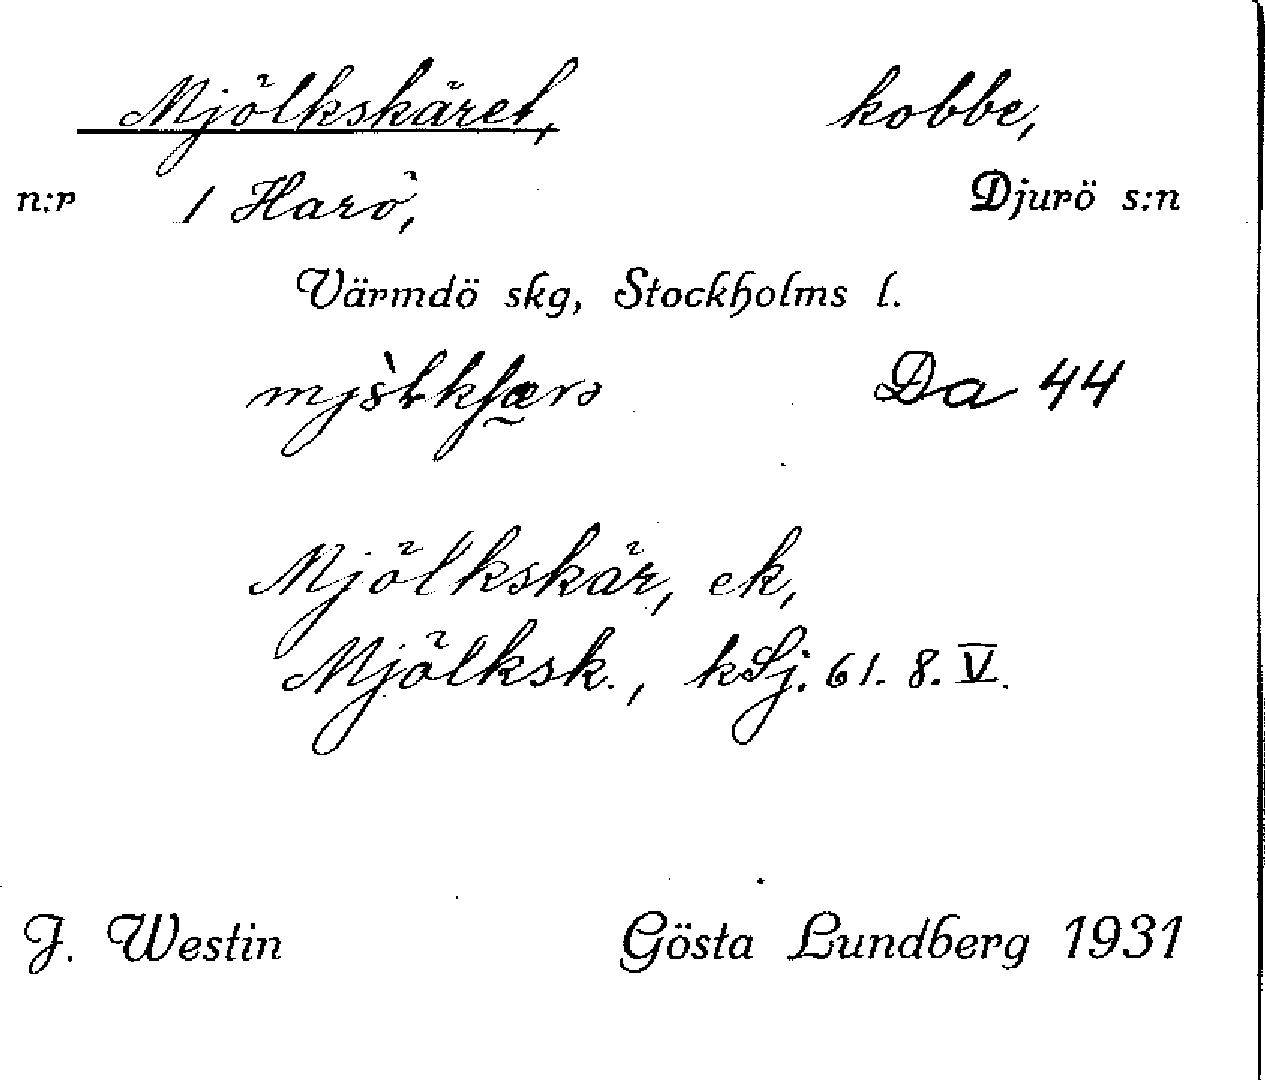 Mjölkskäret, kobbe,
n:r 1 Harö, Djurö s:n
Värmdö skg, Stockholms l.
Da 44
Mjölkskär, ek,
Mjölksk., kSj. 61. 8. V.
J. Westin Gösta Lundberg 1931